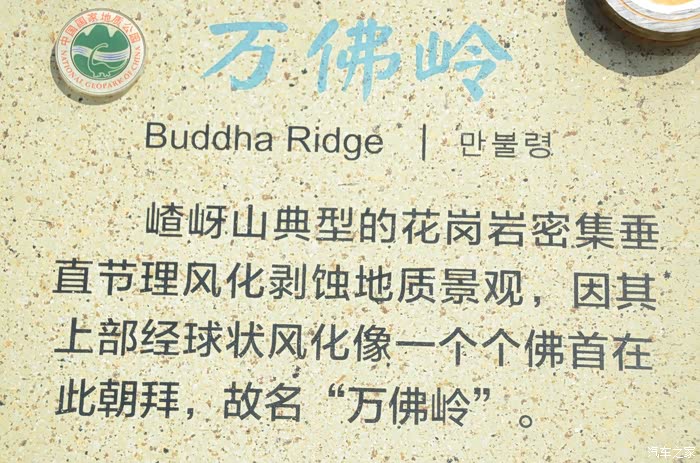 中国国家地质公园
NATIONAL GEOPARK OF CHINA
万佛岭
Buddha Ridge | 만불령
嵖岈山典型的花岗岩密集垂
直节理风化剥蚀地质景观，因其
上部经球状风化像一个个佛首在
此朝拜，故名“万佛岭”。
汽车之家